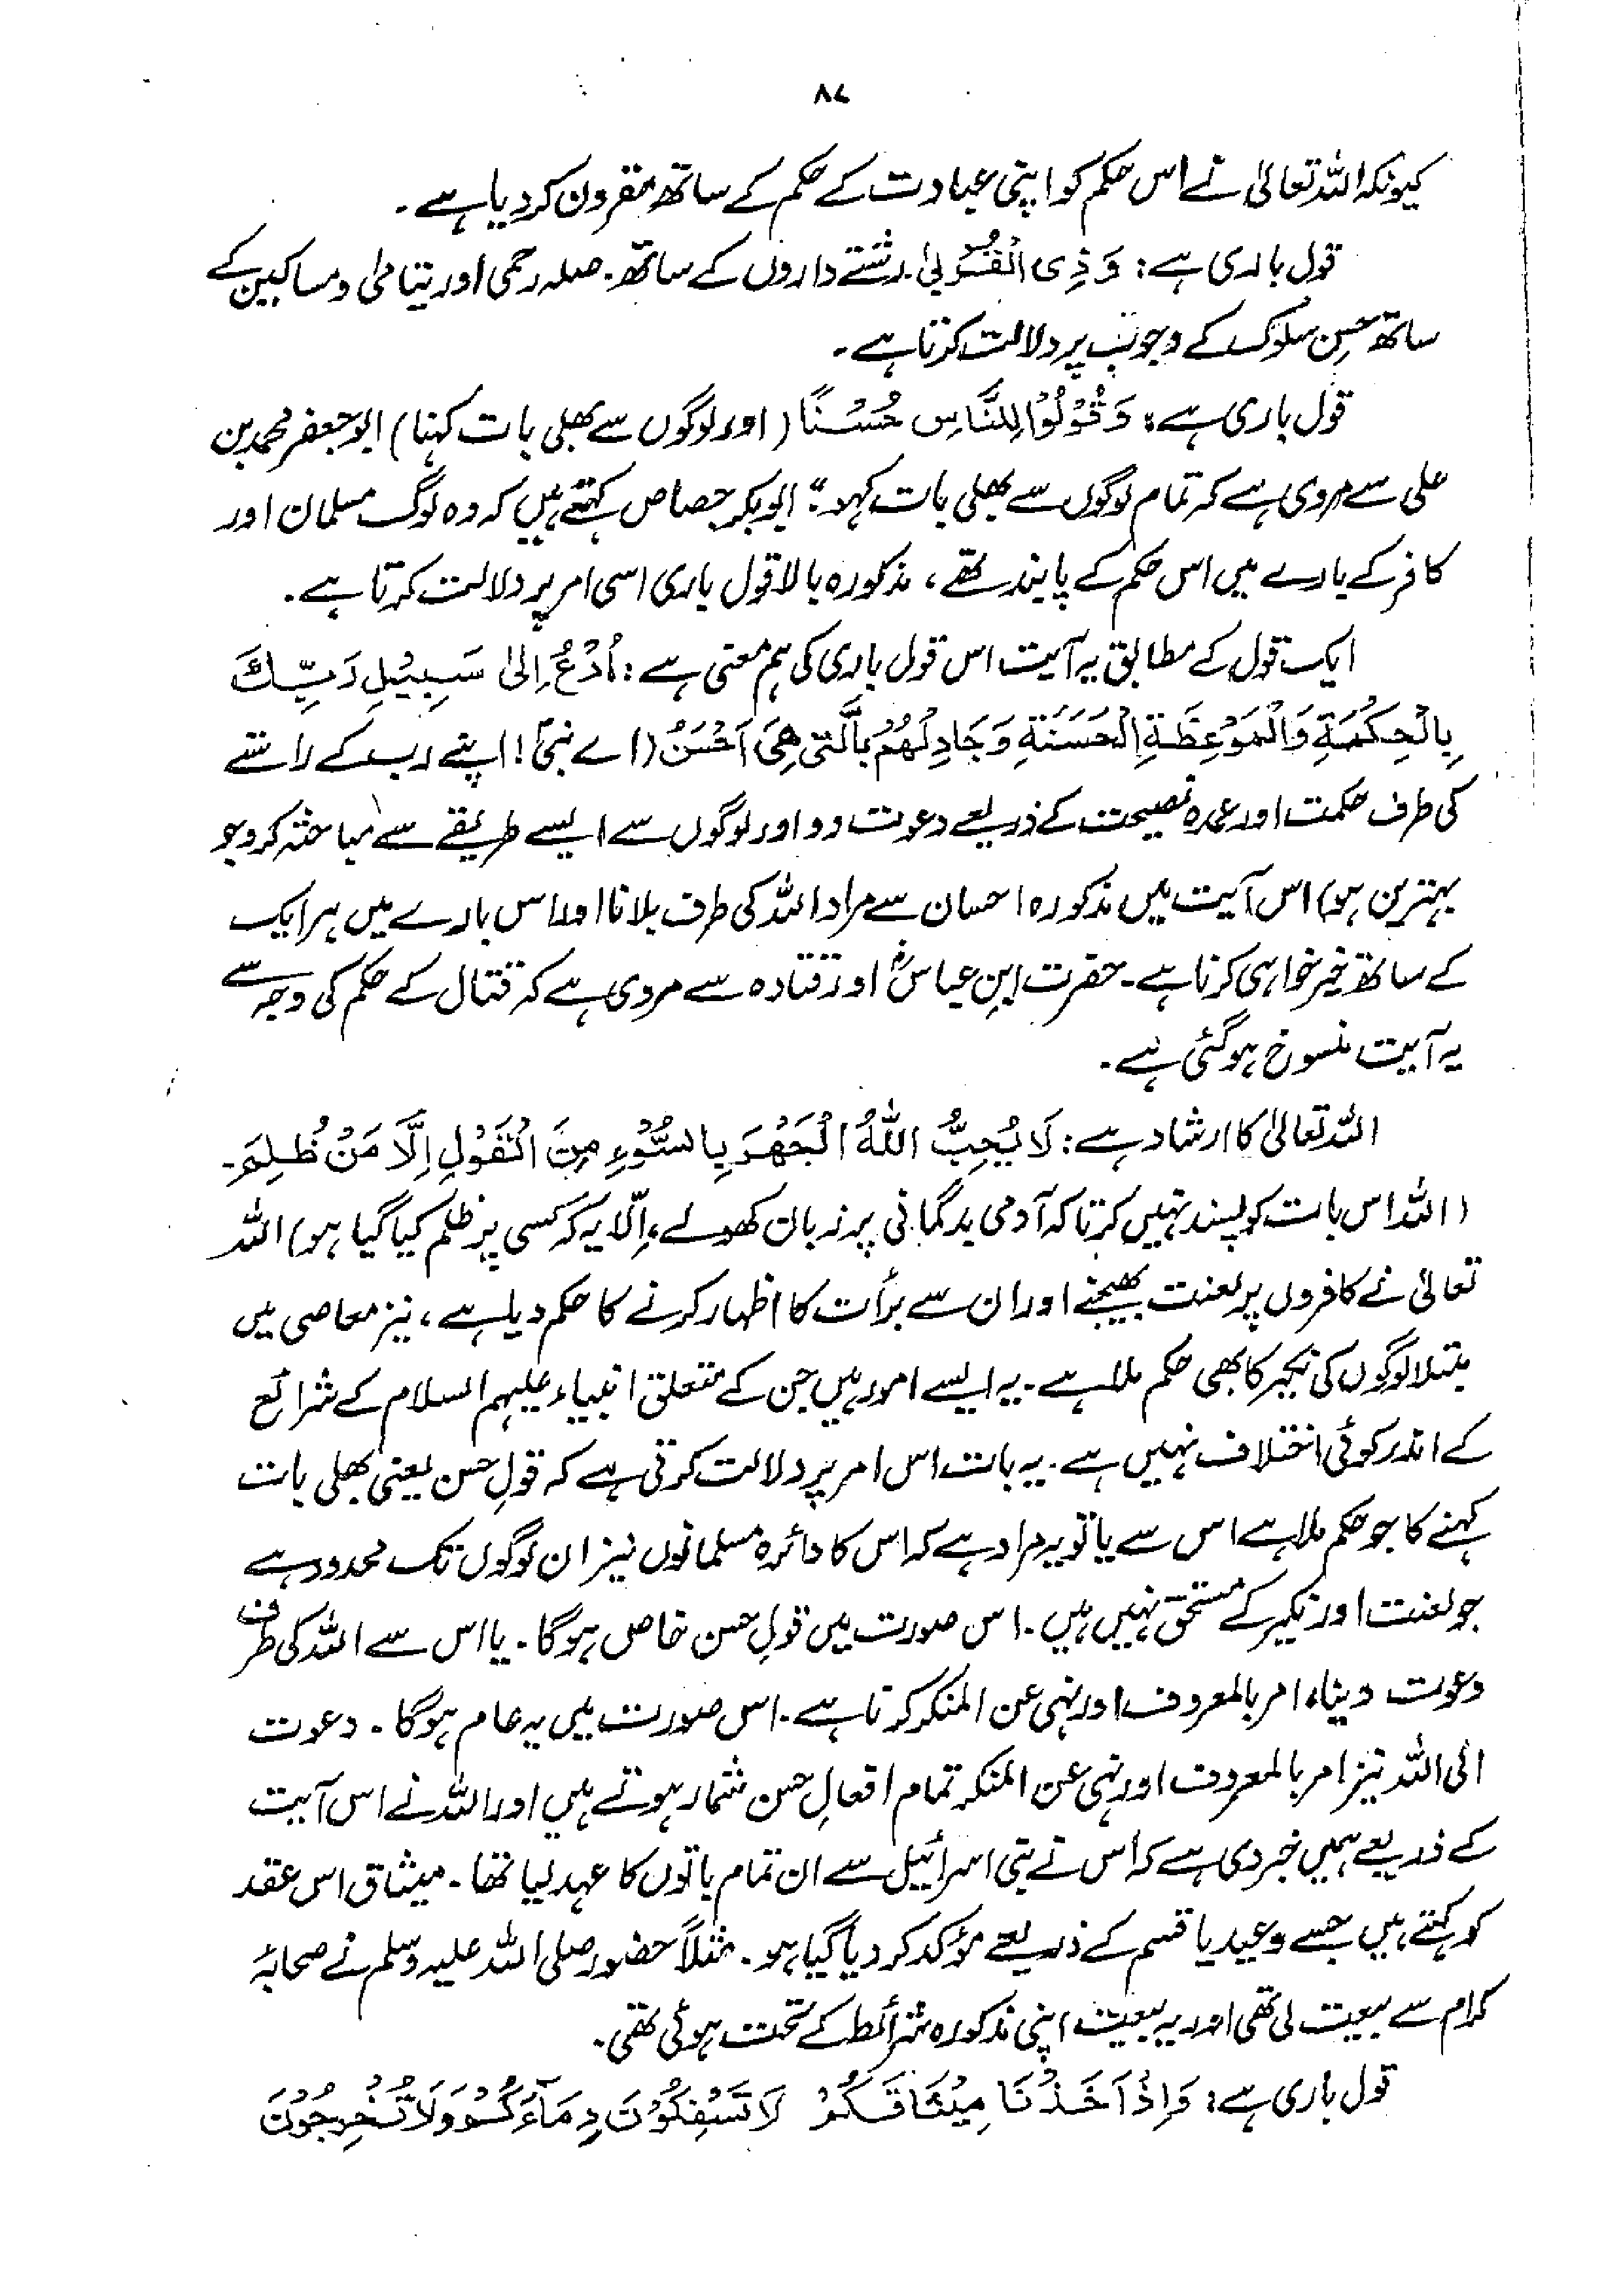 ۸۷
کیونکہ اللہ تعالیٰ نے اس حکم کو اپنی عبادت کے حکم کے ساتھ مقرون کر دیا ہے۔
قول باری ہے: وَذِی الْقُرْبیٰ. رشتے داروں کے ساتھ۔ صلہ رحمی اور یتامیٰ و مساکین کے
ساتھ حسنِ سلوک کے وجوب پر دلالت کرتا ہے۔
قول باری ہے: وَقُوْلُوْا لِلنَّاسِ حُسْنًا (اور لوگوں سے بھلی بات کہنا) ابو جعفر محمد بن
علی سے مروی ہے کہ تمام لوگوں سے بھلی بات کہو"۔ ابوبکر جصاص کہتے ہیں کہ وہ لوگ مسلمان اور
کافر کے بارے میں اس حکم کے پابند تھے، مذکورہ بالا قول باری اسی امر پر دلالت کرتا ہے۔
ایک قول کے مطابق یہ آیت اس قول باری کی ہم معنی ہے: اُدْعُ اِلیٰ سَبِیْلِ رَبِّكَ
بِالْحِكْمَةِ وَالْمَوْعِظَةِ الْحَسَنَةِ وَجَادِلْهُمْ بِالَّتِیْ هِیَ اَحْسَنُ (اے نبیؐ! اپنے رب کے راستے
کی طرف حکمت اور عمدہ نصیحت کے ذریعے دعوت دو اور لوگوں سے ایسے طریقے سے مباحثہ کرو جو
بہترین ہو) اس آیت میں مذکورہ احسان سے مراد اللہ کی طرف بلانا اور اس بارے میں ہر ایک
کے ساتھ خیر خواہی کرنا ہے۔ حضرت ابن عباسؓ اور قتادہ سے مروی ہے کہ قتال کے حکم کی وجہ سے
یہ آیت منسوخ ہوگئی ہے۔
اللہ تعالیٰ کا ارشاد ہے: لَا یُحِبُّ اللّٰهُ الْجَهْرَ بِالسُّوْءِ مِنَ الْقَوْلِ اِلَّا مَنْ ظُلِمَ۔
(اللہ اس بات کو پسند نہیں کرتا کہ آدمی بدگمانی پر زبان کھولے، اِلّا یہ کہ کسی پر ظلم کیا گیا ہو) اللہ
تعالیٰ نے کافروں پر لعنت بھیجنے اور ان سے برأت کا اظہار کرنے کا حکم دیا ہے، نیز معاصی میں
مبتلا لوگوں کی نکیر کا بھی حکم ملا ہے۔ یہ ایسے امور ہیں جن کے متعلق انبیاء علیہم السلام کے شرائع
کے اندر کوئی اختلاف نہیں ہے۔ یہ بات اس امر پر دلالت کرتی ہے کہ قولِ حسن یعنی بھلی بات
کہنے کا جو حکم ملا ہے اس سے یا تو یہ مراد ہے کہ اس کا دائرہ مسلمانوں نیز ان لوگوں تک محدود ہے
جو لعنت اور نکیر کے مستحق نہیں ہیں۔ اس صورت میں قولِ حسن خاص ہوگا۔ یا اس سے اللہ کی طرف
دعوت دینا، امر بالمعروف اور نہی عن المنکر کرنا ہے۔ اس صورت میں یہ عام ہوگا۔ دعوت
الی اللہ نیز امر بالمعروف اور نہی عن المنکر تمام افعالِ حسن شمار ہوتے ہیں اور اللہ نے اس آیت
کے ذریعے ہمیں خبر دی ہے کہ اس نے بنی اسرائیل سے ان تمام باتوں کا عہد لیا تھا۔ میثاق اس عقد
کو کہتے ہیں جسے وعید یا قسم کے ذریعے مؤکد کر دیا گیا ہو۔ مثلاً حضور صلی اللہ علیہ وسلم نے صحابۂ
کرام سے بیعت لی تھی اور یہ بیعت اپنی مذکورہ شرائط کے تحت ہوئی تھی۔
قول باری ہے: وَاِذْ اَخَذْنَا مِیْثَاقَكُمْ لَا تَسْفِكُوْنَ دِمَآءَكُمْ وَلَا تُخْرِجُوْنَ